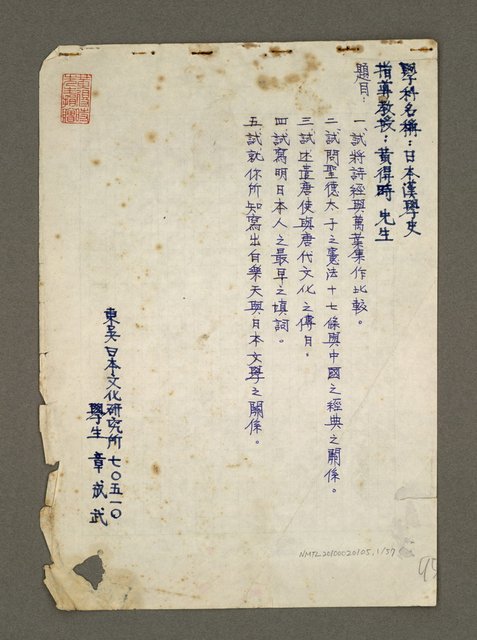 學科名稱：日本漢學史
指導教授：黃得時 先生
題目：
一試將詩經與萬葉集作比較。
二試問聖德太子之憲法十七條與中國之經典之關係。
三試述遣唐使與唐代文化之傳日。
四試寫明日本人之最早之填詞。
五試就你所知寫出白樂天與日本文學之關係。
東吳日本文化研究所七〇五一〇
學生 章成武
黃得時
NMTL20100020105, 1/57